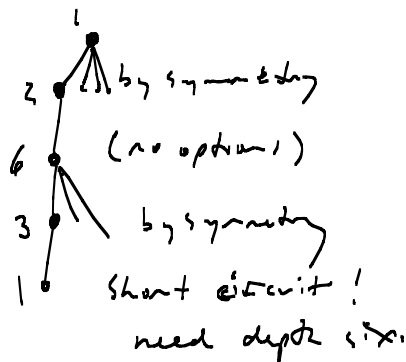 1
2 by symmetry
6 (no options)
3 by symmetry
1 short circuit!
need depth six.